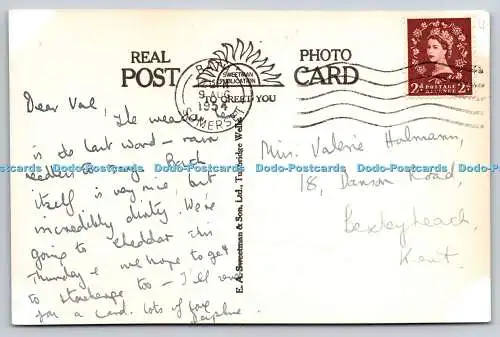 REAL
PHOTO
POST
CARD
A SWEETMAN
PUBLICATION
TO GREET YOU
9 AUG
1954
SOMERSET
POSTAGE
REVENUE
2d 2d
Dear Val, The weather
is the last word – rain
Beach
itself is very nice, but
incredibly dirty. We're
going to Cheddar this
Thursday & we hope to get
to Stonehenge too – I'll send
you a card. Lots of love
Daphne.
E. A. Sweetman & Son, Ltd., Tunbridge Wells
Miss. Valerie Hofmann,
18, Danson Road,
Bexleyheath,
Kent.
Dodo-Postcards Dodo-Postcards Dodo-Postcards Dodo-Postcards Dodo-Postcards Dodo-Postcards